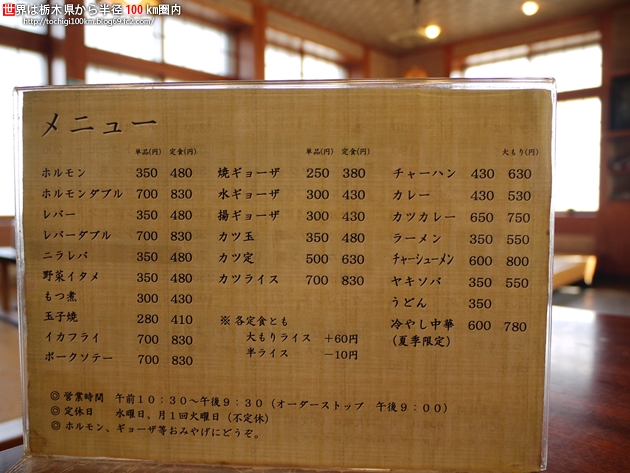 世界は栃木県から半径100km圏内
http://tochigi100km.blog69.fc2.com/
メニュー
単品(円) 定食(円)
ホルモン 350 480
ホルモンダブル 700 830
レバー 350 480
レバーダブル 700 830
ニラレバ 350 480
野菜イタメ 350 480
もつ煮 300 430
玉子焼 280 410
イカフライ 700 830
ポークソテー 700 830
単品(円) 定食(円)
焼ギョーザ 250 380
水ギョーザ 300 430
揚ギョーザ 300 430
カツ玉 350 480
カツ定 500 630
カツライス 700 830
※各定食とも
大もりライス +60円
半ライス −10円
大もり(円)
チャーハン 430 630
カレー 430 530
カツカレー 650 750
ラーメン 350 550
チャーシューメン 600 800
ヤキソバ 350 550
うどん 350
冷やし中華 600 780
(夏季限定)
◎営業時間 午前10:30〜午後9:30(オーダーストップ 午後9:00)
◎定休日 水曜日、月1回火曜日(不定休)
◎ホルモン、ギョーザ等おみやげにどうぞ。